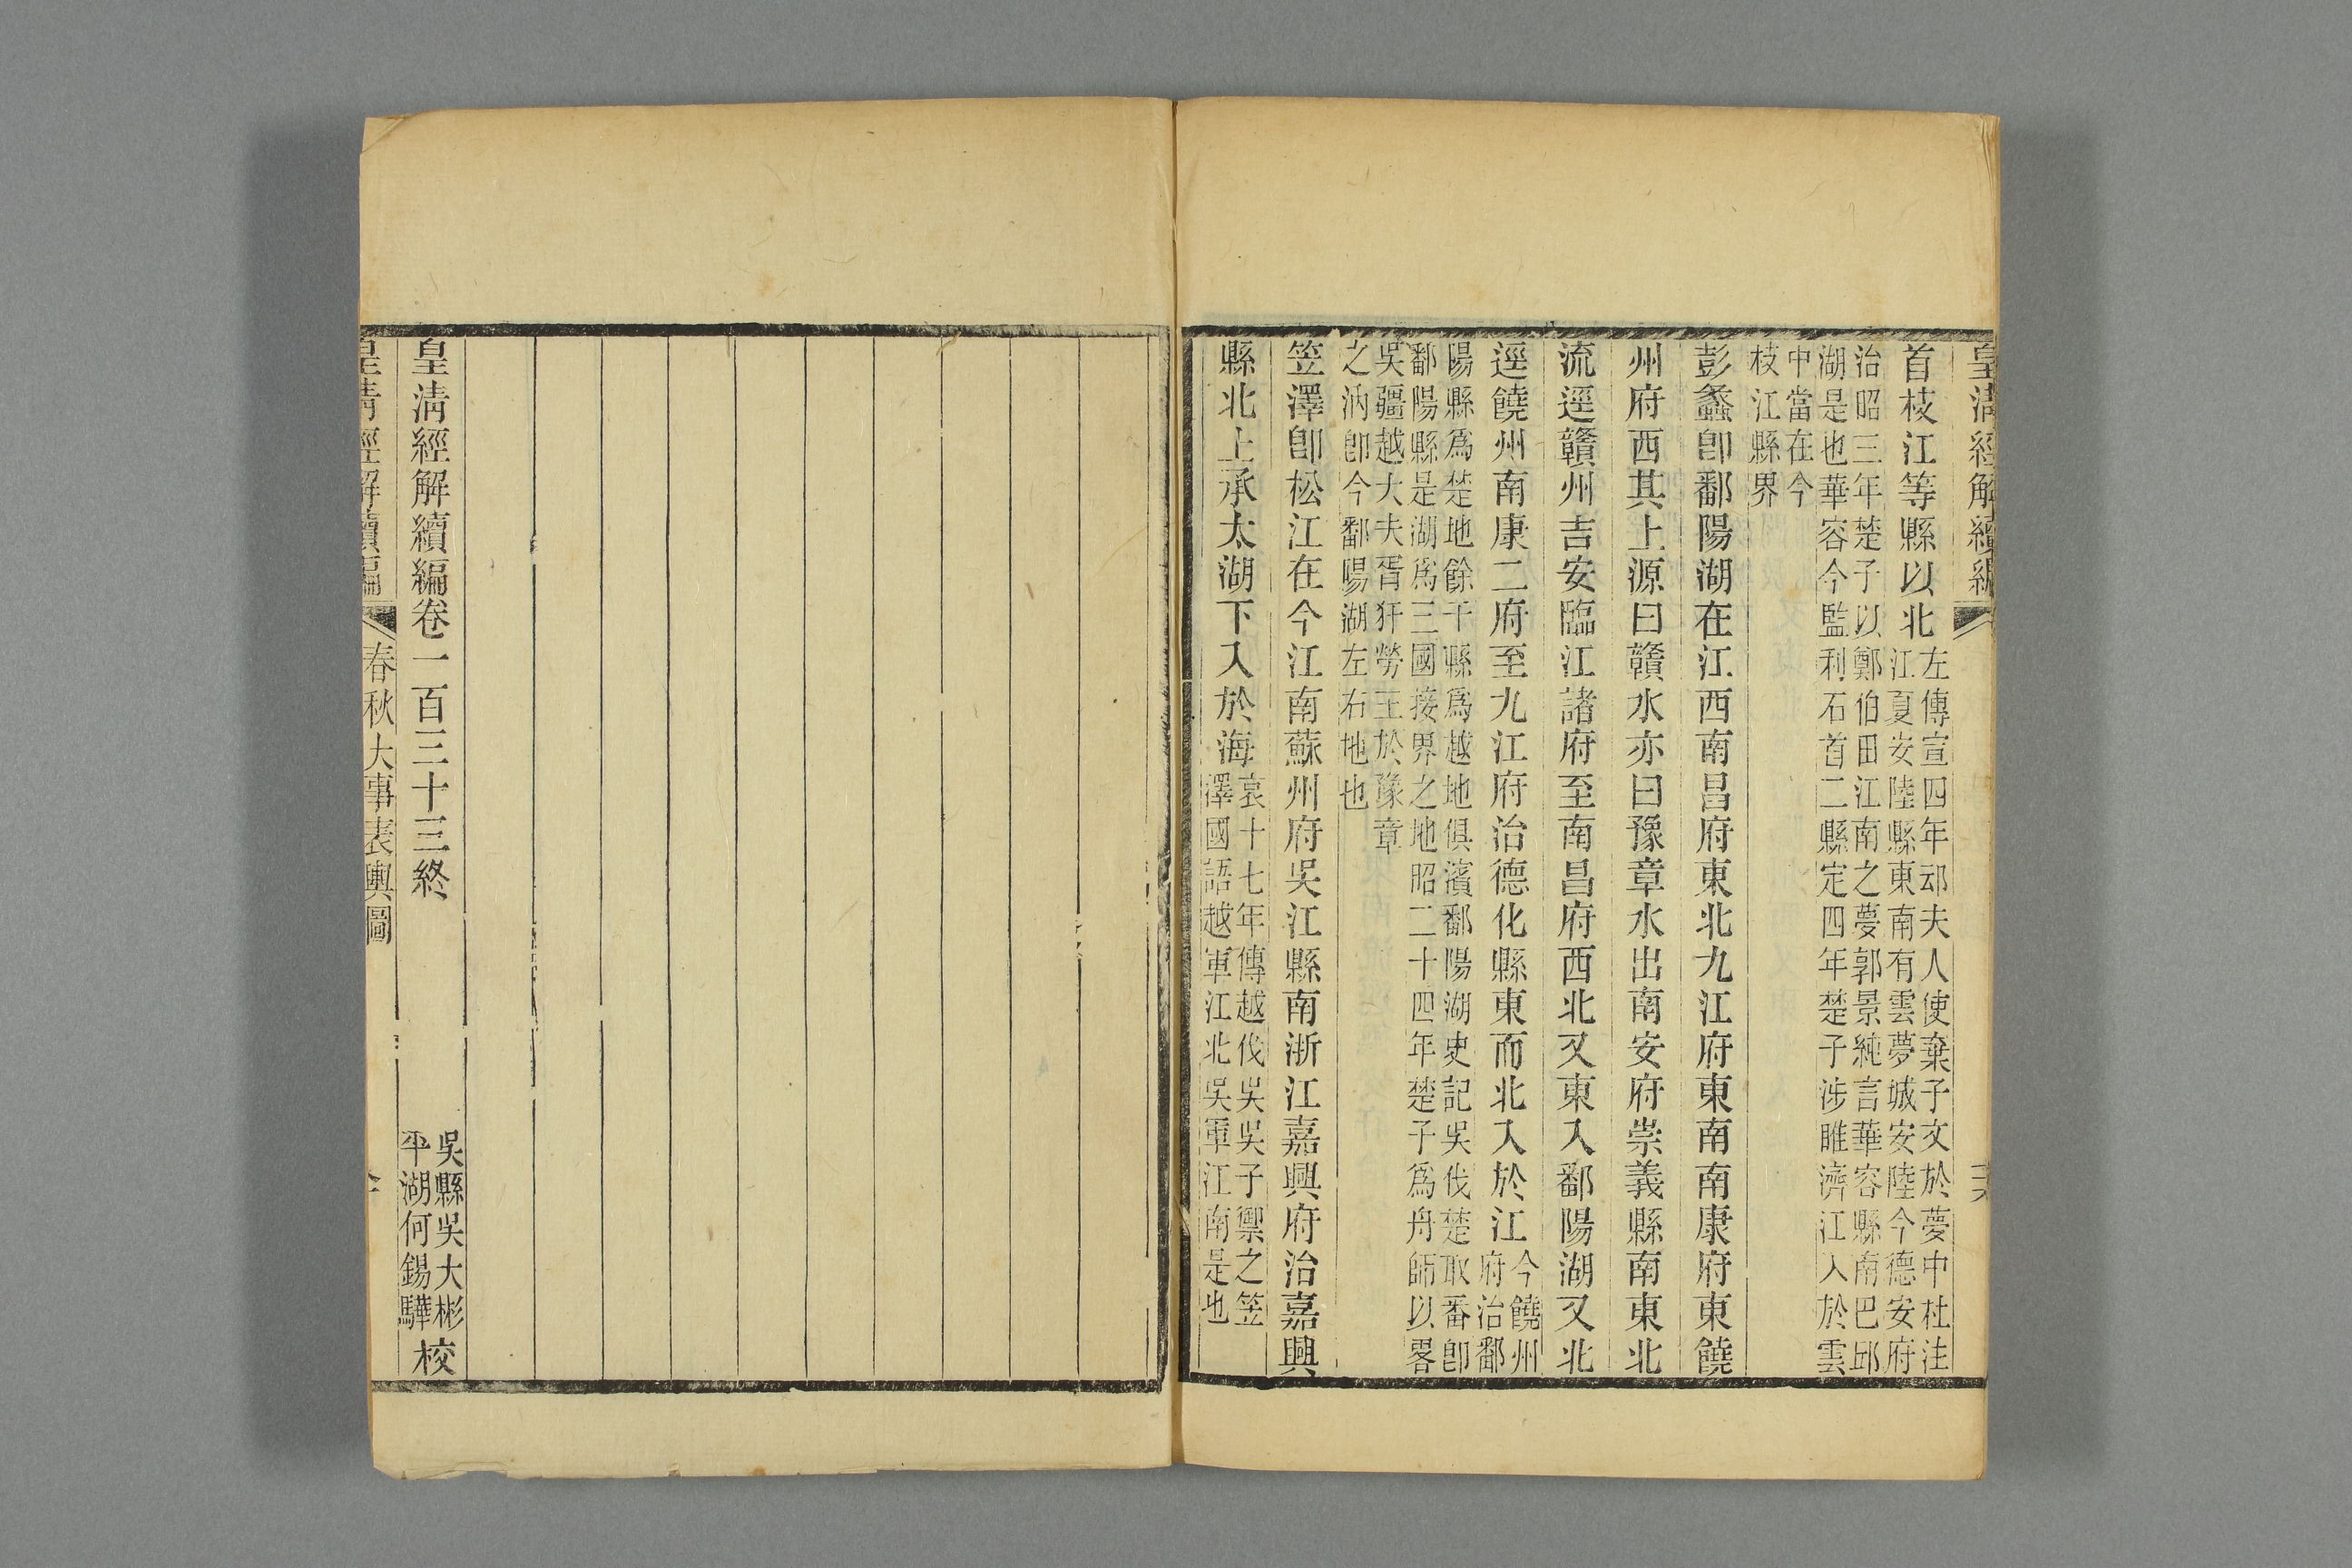 皇清經解續編
首枝江等縣以北左傳宣四年䢵夫人使棄子文於夢中杜注
江夏安陸縣東南有雲夢城安陸今德安府
治昭三年楚子以鄭伯田江南之夢郭景純言華容縣南巴邱
湖是也華容今監利石首二縣定四年楚子涉睢濟江入於雲
中當在今
枝江縣界
彭蠡卽鄱陽湖在江西南昌府東北九江府東南南康府東饒
州府西其上源曰贛水亦曰豫章水出南安府崇義縣南東北
流逕贛州吉安臨江諸府至南昌府西北又東入鄱陽湖又北
逕饒州南康二府至九江府治德化縣東而北入於江今饒州
府治鄱
陽縣爲楚地餘干縣爲越地俱濱鄱陽湖史記吳伐楚取番卽
鄱陽縣是湖爲三國接界之地昭二十四年楚子爲舟師以畧
吳疆越大夫胥犴勞王於豫章
之汭卽今鄱陽湖左右地也
笠澤卽松江在今江南蘇州府吳江縣南浙江嘉興府治嘉興
縣北上承太湖下入於海哀十七年傳越伐吳吳子禦之笠
澤國語越軍江北吳軍江南是也
皇清經解續編卷一百三十三終
吳縣吳大彬
平湖何錫驊
校
皇清經解續編
春秋大事表輿圖